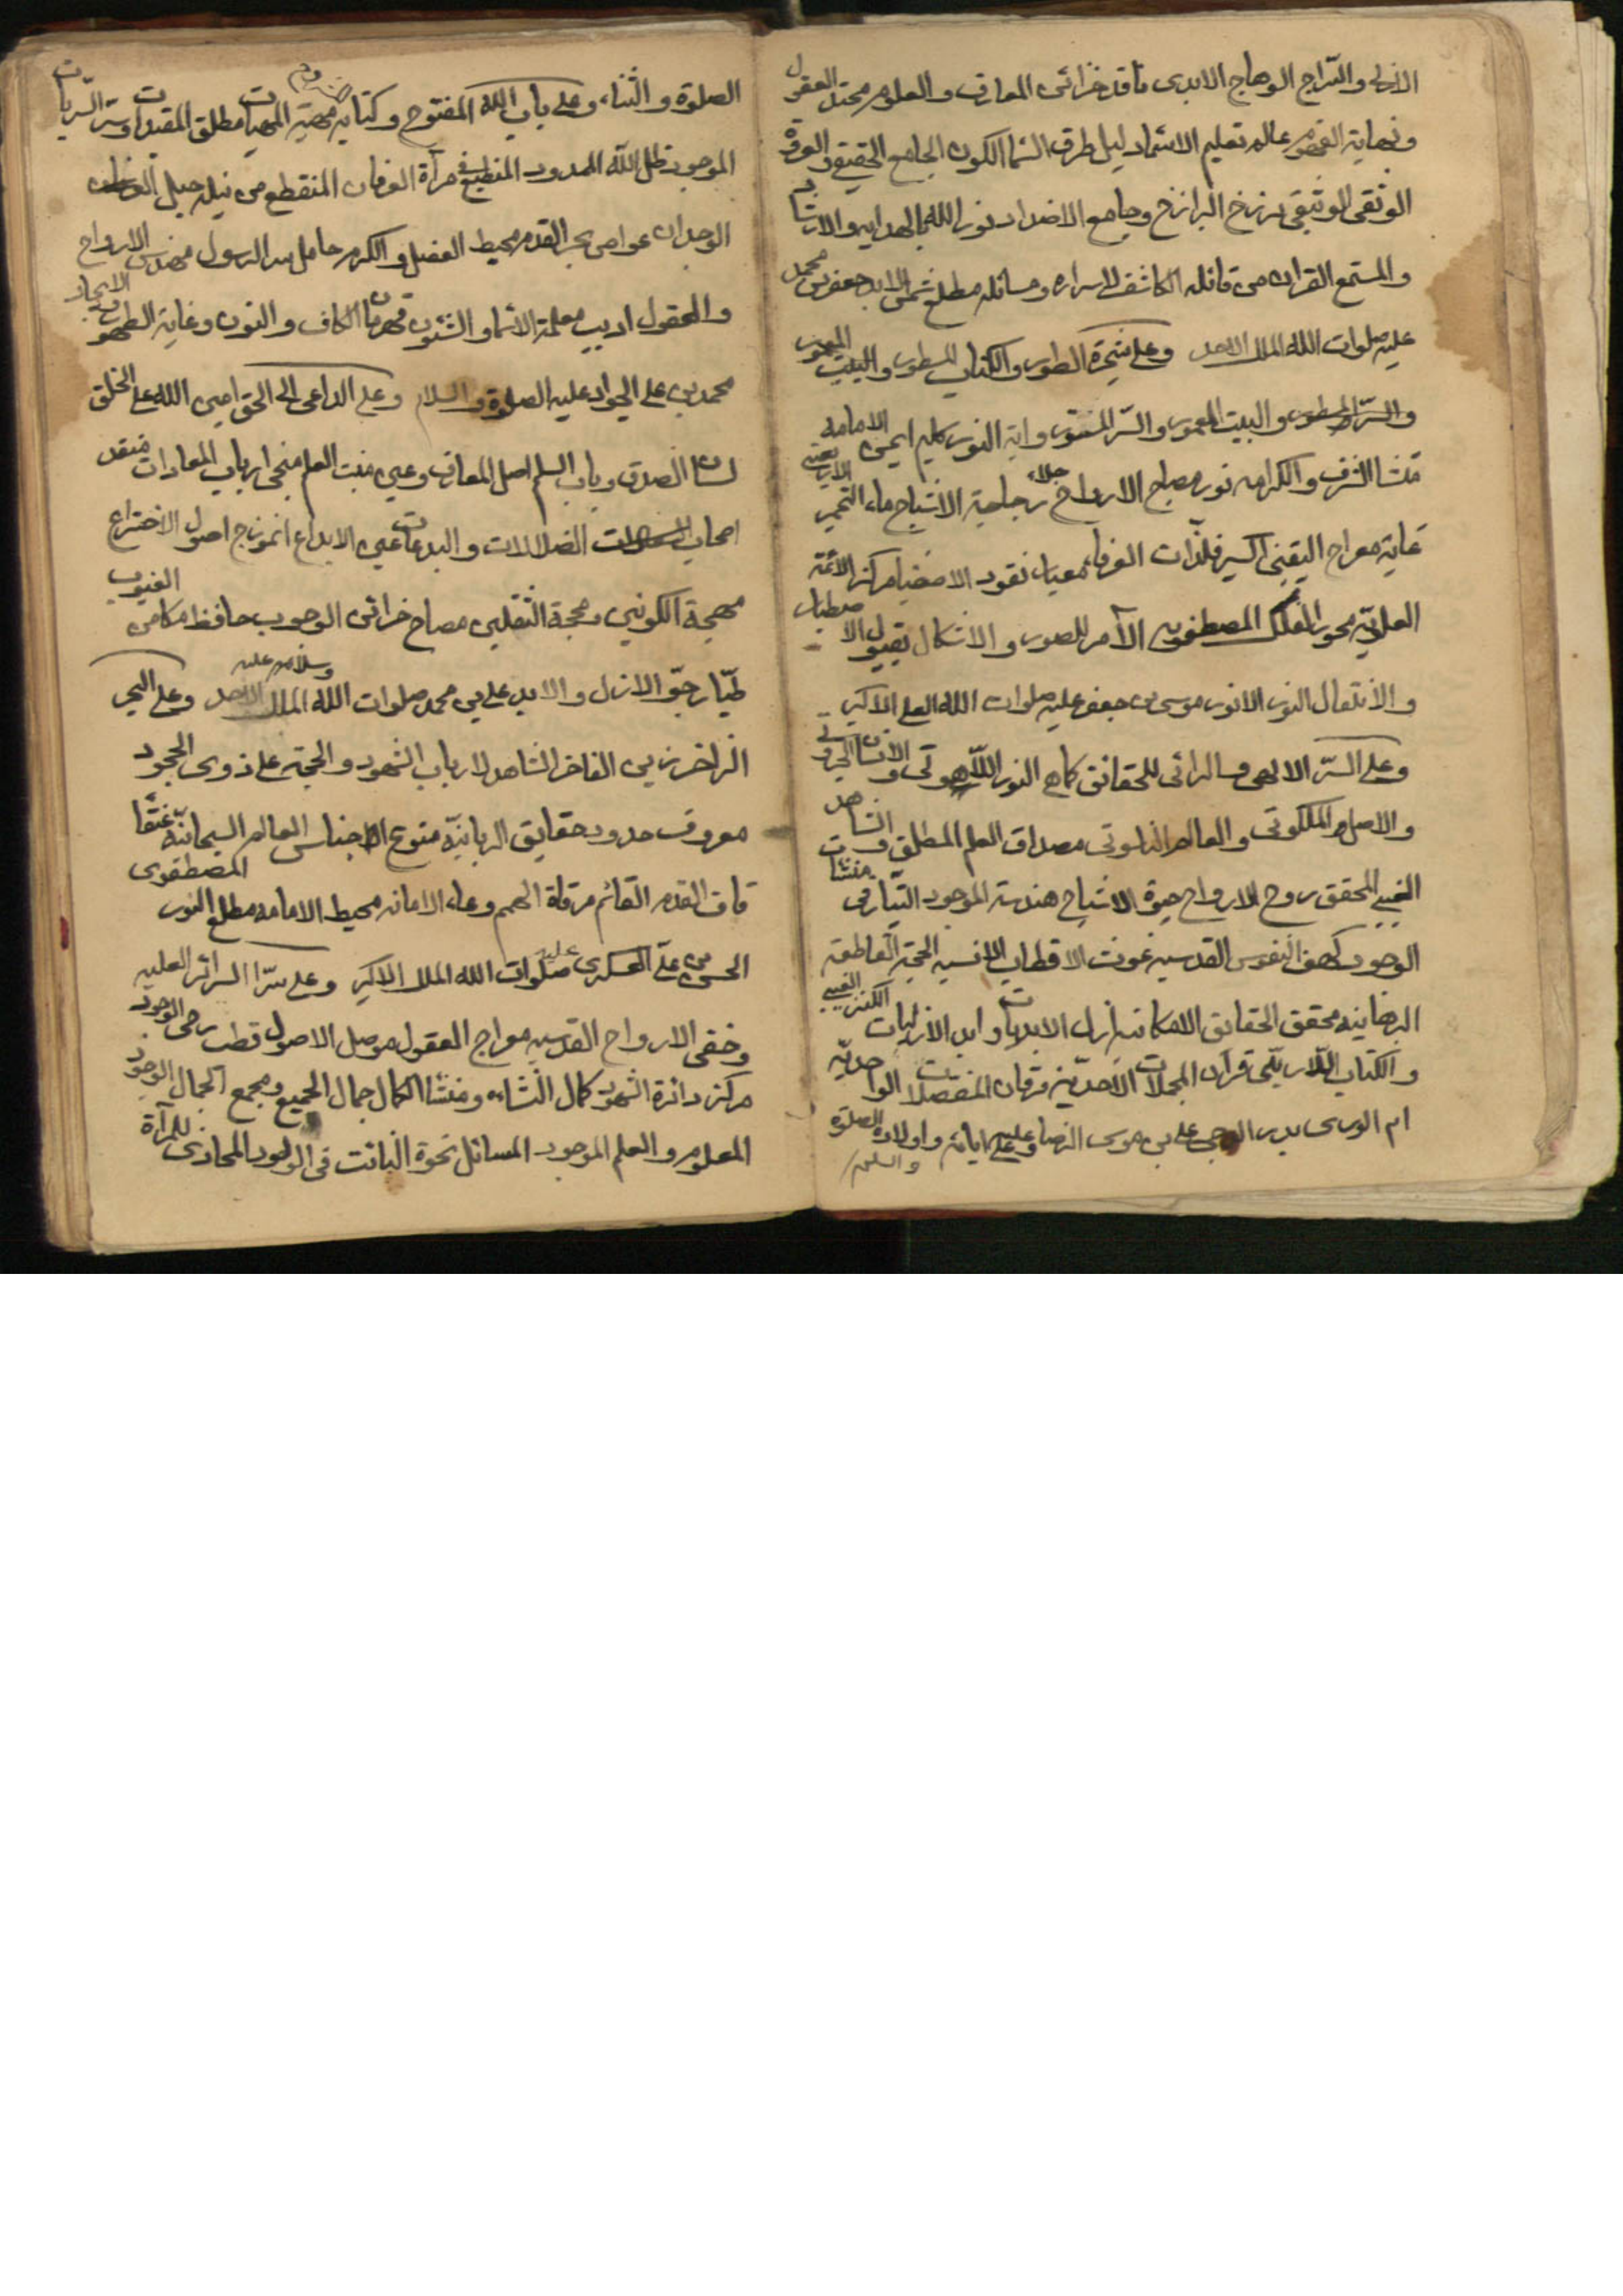 الازلى والسراج الوهاج الابدى ناقد خزائن المعارف والعلوم محتد العقول
ونهاية الفهوم عالم تعليم الاسماء دليل طرق السماء الكون الجامع الحقيقى والعروة
الوثقى الوثيقى برزخ البرازخ وجامع الاضداد نور الله بالهداية والارشاد
والمستمع القران من قائله الكاشف لاسراره ومسائله مطلع شمس الابد جعفر بن محمد
عليه صلوات الله الملك الاحد وعلى شجرة الطور والكتاب المسطور والبيت المعمور
والسر المستور والبيت المعمور والسر المستور واية النور كليم ايمن الامامة
منشا الشرف والكرامة نور مصباح الارواح جلاء زجاجة الاشباح ماء التخمير الاربعينى
غاية معراج اليقينى اكسير فلذات العرفاء معيار نقود الاصفيا مركز الائمة
العلوية محور الفلك المصطفوية الآمر للصور والاشكال بقبول الاصطبار
والانتقال النور الانور موسى بن جعفر عليه صلوات الله العلى الاكبر
وعلى السر الالهى والرائى للحقائق كما هى النور اللاهوتى والانسان الجبروتى
والاصل الملكوتى والعالم الناسوتى مصداق العلم المطلق والشاهد
الغيبى المحقق روح الارواح حيوة الاشباح هندسة الموجود الطيار فى منشات
الوجود كهف النفوس القدسيه غوث الاقطاب الانسيه الحجة القاطعة
الربانيه محقق الحقائق الامكانيه ازل الابديات وابد الازليات الكنز الغيبى
والكتاب اللاريبى قرآن المجملات الاحدية فرقان المفصلات الواحدية
ام الورى بدر الدجى على بن موسى الرضا وعلى ابائه واولاده الصلوة والسلم
الصلوة والثناء وعلى باب الله المفتوح وكتابه المشروح مهية المهيات مطلق المقيدات وسر السريات
الموجود ظل الله الممدود المنطبع فى مرآة العرفان المنقطع من نيله حبل
الوجدان غواص بحر القدم محيط الفضل والكرم حامل سر الرسول مهندس الارواح
والعقول اديب معلمة الاسماء والشئون قهرمان الكاف والنون وغاية الظهور والايجاد
محمد بن على الجواد عليه الصلوة والسلام وعلى الداعى الى الحق امين الله على الخلق
لسان الصدق وباب السلم اصل المعارف وعين منبت العلم منجى ارباب المعادات منقذ
اصحاب الضلالات والبدعات عين الابداع انموزج اصول الاختراع
مهجة الكونين ومحجة الثقلين مفتاح خزائن الوجوب حافظ مكامن الغيوب
طيار جو الازل والابد على بن محمد صلوات الله الملك الاحد وسلامه عليه وعلى البحر
الزاخر زين المفاخر الشاهد لارباب الشهود والحجة على ذوى الجحود
معرف حدود حقايق الربانية منوع اجناس العالم السبحانية عنقاء
قاف القدم القائم مرقاة الهمم وعاء الامانه محيط الامامه مطلع النور المصطفوى
الحسن بن على العسكرى عليه صلوات الله الملك الاكبر وعلى سر السرائر العليه
وخفى الارواح القدسيه معراج العقول موصل الاصول قطب رحى الوجود
مركز دائرة الشهود كمال النشاءه ومنشا الكمال جمال الجميع ومجمع الجمال الوجود
المعلوم والعلم الموجود المسائل نحوه الثابت فى الوجود المحاذى للمرآة